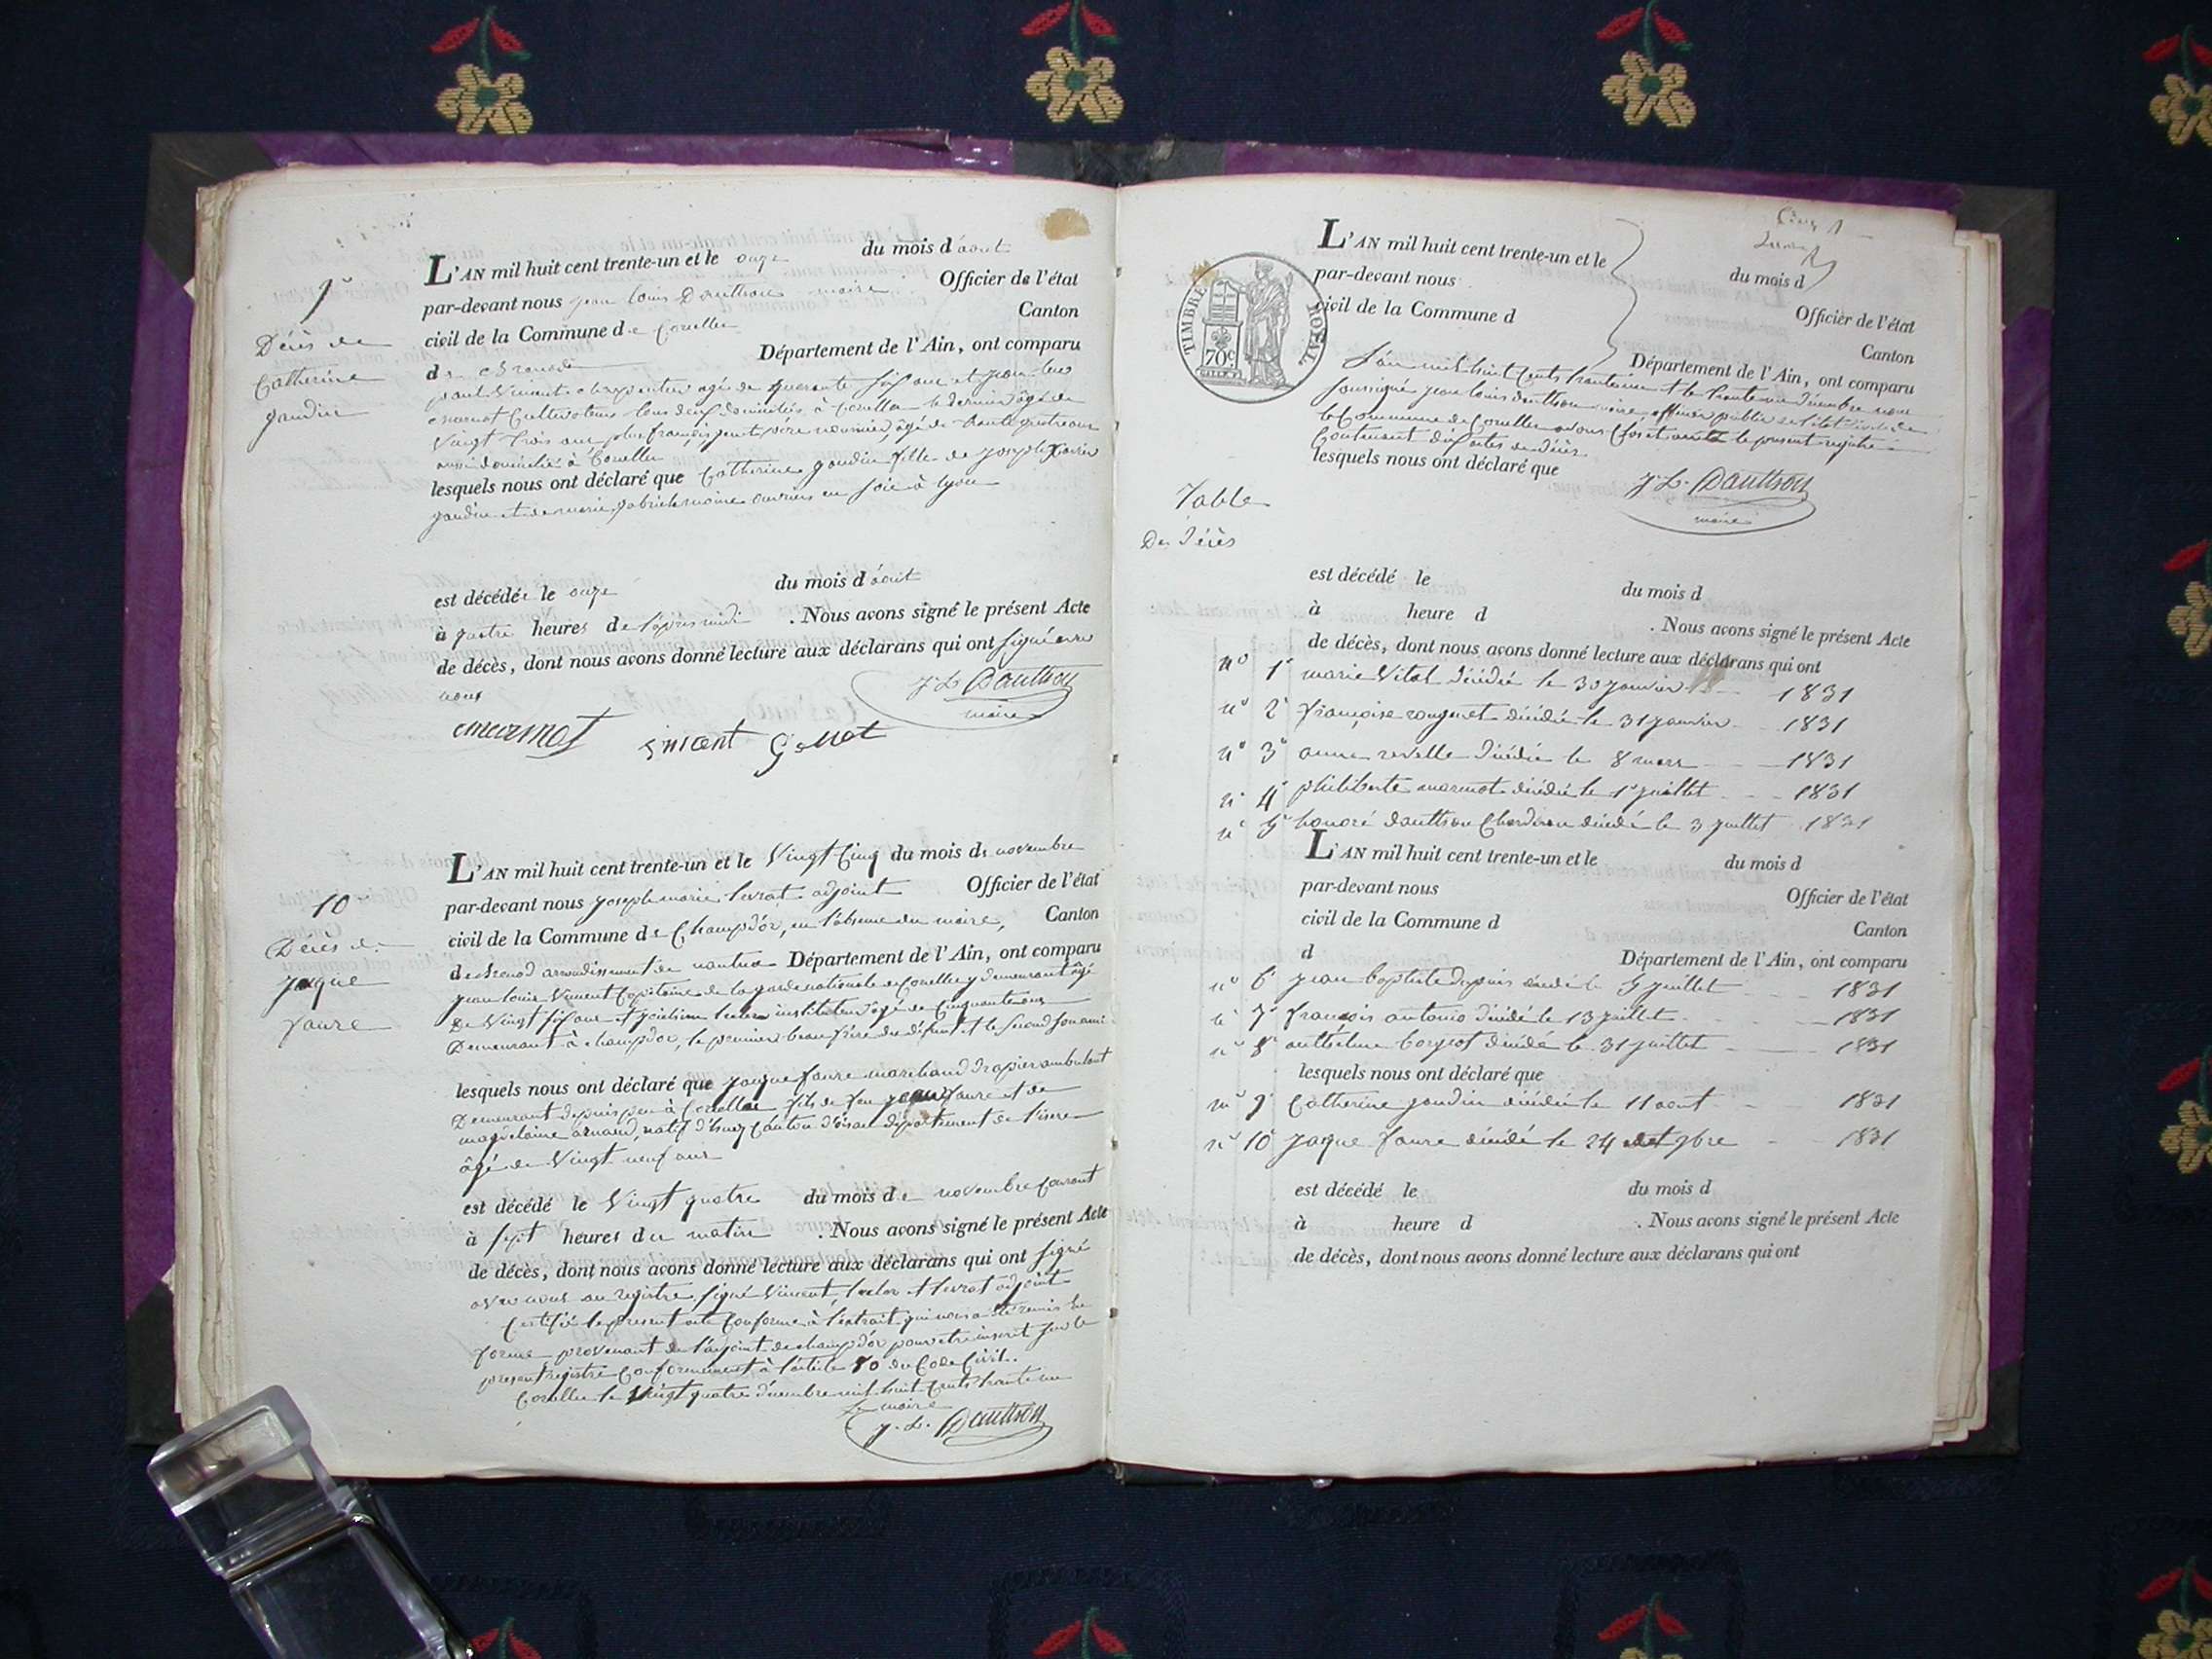 9e
Décès de
Catherine
gaudin
L'AN mil huit cent trente-un et le onze du mois d'août
par-devant nous jean louis Douttson maire Officier de l'état
civil de la Commune de Corcelles Canton
de Département de l'Ain, ont comparu
paul Vincent charpentier agé de quarante six ans et jean
marmot Cultivateur tous deux domiciliés à Corcelles le dernier âgé de
Vingt trois ans, plus françois père nourricier, âgé de trente quatre ans
aussi domicilié à Corcelles
lesquels nous ont déclaré que Catherine gaudin fille de joseph Xavier
gaudin et de marie gabrielle moine ouvriers en soie à lyon
est décédée le onze du mois d'août
à quatre heures de l'après midi . Nous avons signé le présent Acte
de décès, dont nous avons donné lecture aux déclarans qui ont signé avec
nous
J L Douttson
maire
marmot vincent
10
Décès de
jaque
faure
L'AN mil huit cent trente-un et le Vingt Cinq du mois de novembre
par-devant nous joseph marie levrat adjoint Officier de l'état
civil de la Commune de Champdor, en l'absence du maire, Canton
de Brenod arrondissement de nantua Département de l'Ain, ont comparu
jean louis Vincent Capitaine de la garde nationale de Corcelles y demeurant âgé
De Vingt six ans et instituteur âgé de Cinquante ans
Demeurant à champdor, le premier beau frère du défunt et le second son ami
lesquels nous ont déclaré que jaque faure marchand drapier ambulant
Demeurant depuis peu à Corcelles, fils de feu faure et de
magdelaine arnaud, natif Canton d'oisan département de l'isere
âgé de Vingt neuf ans
est décédé le Vingt quatre du mois de novembre Courant
à sept heures du matin . Nous avons signé le présent Acte
de décès, dont nous avons donné lecture aux déclarans qui ont signé
avec nous au registre, signé Vincent, et levrat adjoint
Certifié le présent acte Conforme à l'extrait qui nous a été remis en
forme provenant de l'adjoint de champdor pour etre inscrit sur le
present registre Conformement à l'article 80 du Code Civil.
Corcelles le Vingt quatre décembre mil huit Cents trente un
Le maire
J. L. Douttson
L'AN mil huit cent trente-un et le
du mois d
par-devant nous
Officier de l'état
civil de la Commune d
Canton
Département de l'Ain, ont comparu
TIMBRE ROYAL
70c
L'an mil huit Cents trente un et le trente un décembre nous
soussigné jean louis douttson maire officier public de l'état civil de
la Commune de Corcelles avons Clos et arrêté le present registre
Contenant dix actes de décès
lesquels nous ont déclaré que
J. L. Douttson
maire
Table
Des Décès
est décédé le du mois d
à heure d . Nous avons signé le présent Acte
de décès, dont nous avons donné lecture aux déclarans qui ont
no 1 marie Vital décédée le 30 janvier 1831
no 2 françoise décédée le 31 janvier 1831
no 3 anne revelle décédée le 8 mars 1831
no 4 philiberte marmot décédée le 1er juillet 1831
no 5 honoré douttson décédé le 3 juillet 1831
L'AN mil huit cent trente-un et le du mois d
par-devant nous Officier de l'état
civil de la Commune d Canton
d Département de l'Ain, ont comparu
no 6 jean baptiste décédé le 9 juillet 1831
no 7 françois antonio décédé le 13 juillet 1831
no 8 anthelme décédé le 31 juillet 1831
lesquels nous ont déclaré que
no 9 Catherine gaudin décédée le 11 aout 1831
no 10 jaque faure décédé le 24 9bre 1831
est décédé le du mois d
à heure d . Nous avons signé le présent Acte
de décès, dont nous avons donné lecture aux déclarans qui ont